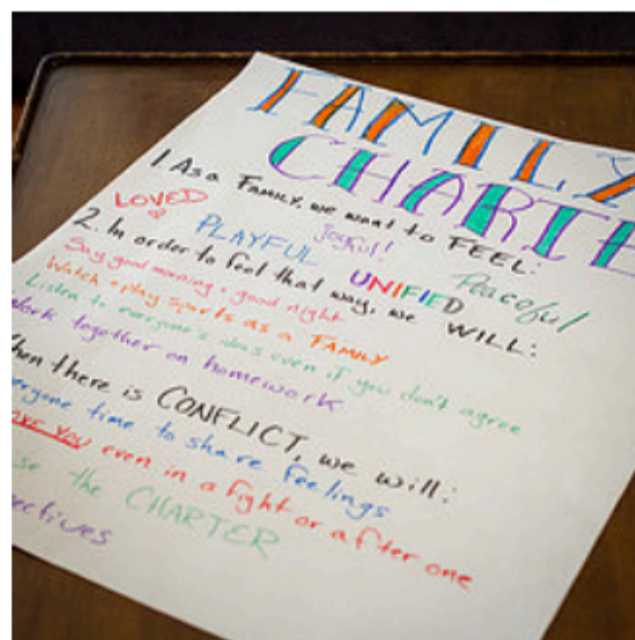 FAMILY
CHARTE
1. As a FAMILY, we want to FEEL:
LOVED PLAYFUL Joyful! UNIFIED Peaceful
2. In order to feel that way, we WILL:
Say good morning + good night
Watch + play sports as a FAMILY
Listen to everyone's ideas even if you don't agree
work together on homework
hen there is CONFLICT, we will:
eryone time to share feelings
ove you even in a fight or after one
se the CHARTER
ectives